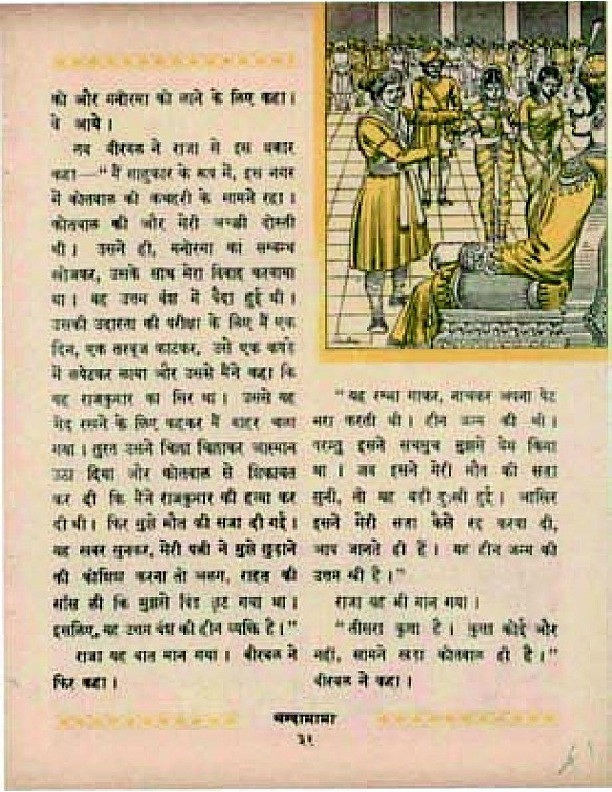 को और मनोरमा को लाने के लिए कहा।
वे आये।
तब बीरबल ने राजा से इस प्रकार
कहा—"मैं साहुकार के रूप में, इस नगर
में कोतवाल की कचहरी के सामने रहा।
कोतवाल की और मेरी अच्छी दोस्ती
थी। उसने ही, मनोरमा का सम्बन्ध
खोजकर, उसके साथ मेरा विवाह करवाया
था। वह उत्तम वंश में पैदा हुई थी।
उसकी उदारता की परीक्षा के लिए मैं एक
दिन, एक तरबूज काटकर, उसे एक कपड़े
में लपेटकर लाया और उससे मैंने कहा कि
वह राजकुमार का सिर था। उससे यह
भेद रखने के लिए कहकर मैं बाहर चला
गया। तुरत उसने चिल्ला चिल्लाकर आस्मान
उठा दिया और कोतवाल से शिकायत
कर दी कि मैंने राजकुमार की हत्या कर
दी थी। फिर मुझे मौत की सजा दी गई।
यह खबर सुनकर, मेरी पत्नी ने मुझे छुड़ाने
की कोशिश करना तो अलग, राहत की
साँस ली कि मुझसे पिंड छूट गया था।
इसलिए, यह उत्तम वंश की हीन व्यक्ति है।"
राजा यह बात मान गया। बीरबल ने
फिर कहा।
"यह रम्भा गाकर, नाचकर अपना पेट
भरा करती थी। हीन जन्म की थी।
परन्तु इसने सचमुच मुझसे प्रेम किया
था। जब इसने मेरी मौत की सजा
सुनी, तो यह बड़ी दुःखी हुई। आखिर
इसने मेरी सजा कैसे रद्द करवा दी,
आप जानते ही हैं। यह हीन जन्म की
उत्तम स्त्री है।"
राजा यह भी मान गया।
"तीसरा कुत्ता है। कुत्ता कोई और
नहीं, सामने खड़ा कोतवाल ही है।"
बीरबल ने कहा।
चन्दामामा
३१